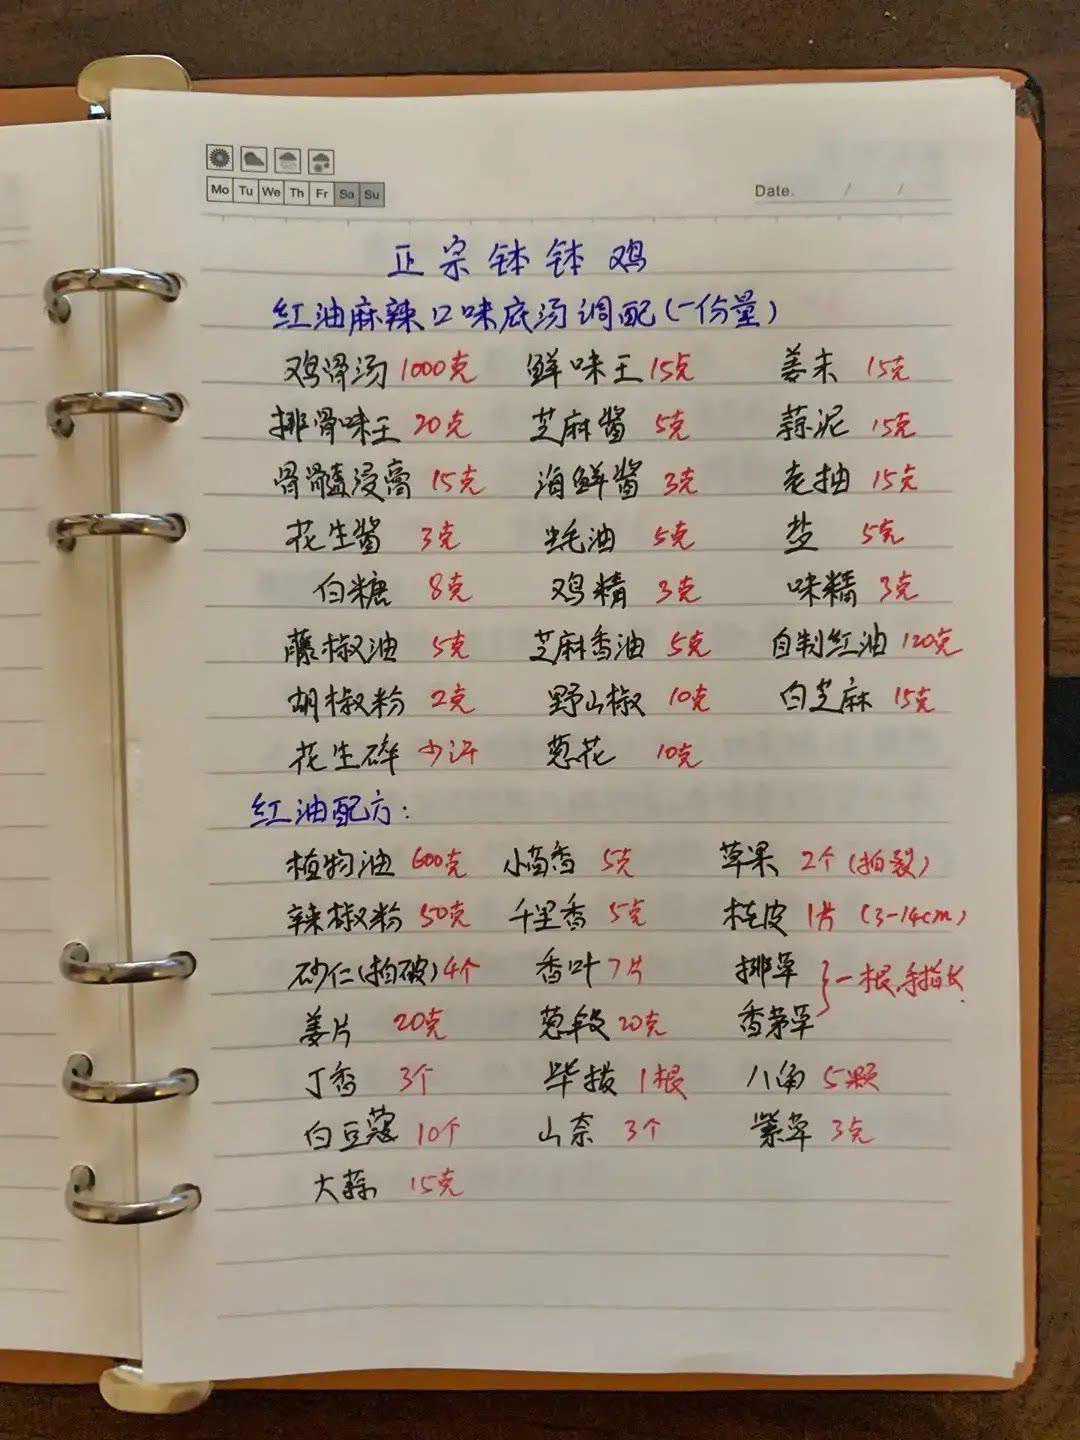 Mo Tu We Th Fr Sa Su
Date. / /
正宗钵钵鸡
红油麻辣口味底汤调配(一份量)
鸡骨汤 1000克 鲜味王 15克 姜末 15克
排骨味王 20克 芝麻酱 5克 蒜泥 15克
骨髓浸膏 15克 海鲜酱 3克 老抽 15克
花生酱 3克 蚝油 5克 盐 5克
白糖 8克 鸡精 3克 味精 3克
藤椒油 5克 芝麻香油 5克 自制红油 120克
胡椒粉 2克 野山椒 10克 白芝麻 15克
花生碎 少许 葱花 10克
红油配方:
植物油 600克 小茴香 5克 草果 2个(拍裂)
辣椒粉 50克 千里香 5克 桂皮 1片 (3-14cm)
砂仁(拍破) 4个 香叶 7片 排草 }一根,手指长
姜片 20克 葱段 20克 香茅草
丁香 3个 毕拨 1根 八角 5颗
白豆蔻 10个 山奈 3个 紫草 3克
大蒜 15克